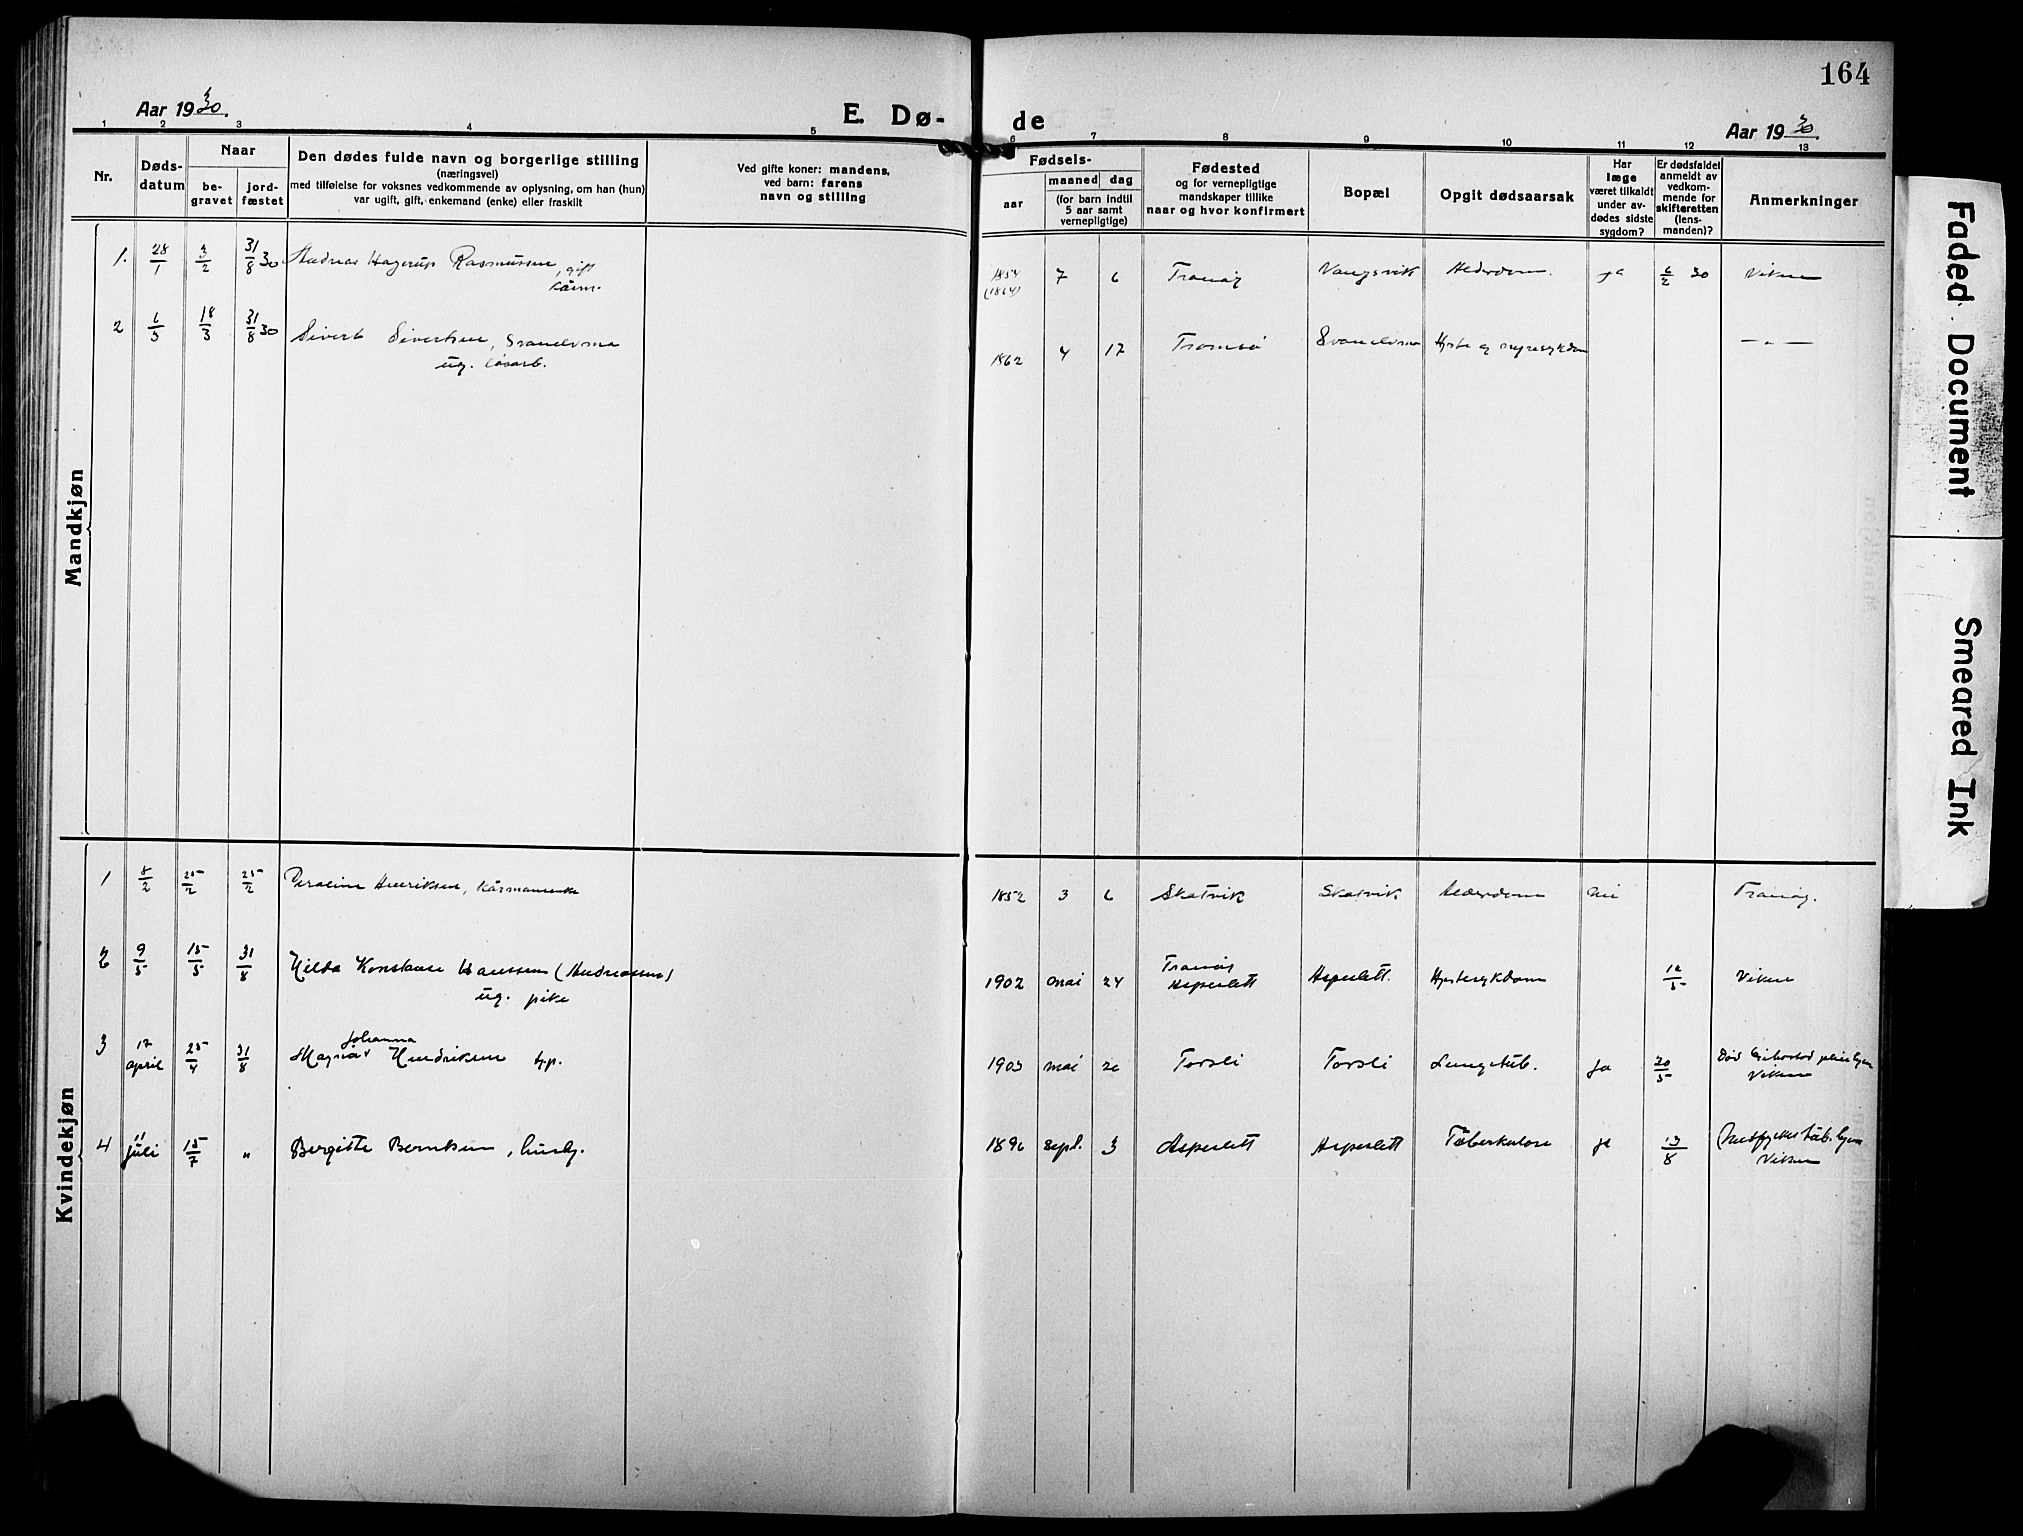 164
Aar 1930.
E. Dø-
de
Aar 1930.
1 2 3 4 5 6 7 8 9 10 11 12 13
Nr.
Døds-
datum
Naar
be-
gravet
jord-
fæstet
Den dødes fulde navn og borgerlige stilling
(næringsvei)
med tilføielse for voksnes vedkommende av oplysning, om han (hun)
var ugift, gift, enkemand (enke) eller fraskilt
Ved gifte koner: mandens,
ved barn: farens
navn og stilling
Fødsels-
aar
maaned
dag
(for barn indtil
5 aar samt
vernepligtige)
Fødested
og for vernepligtige
mandskaper tillike
naar og hvor konfirmert
Bopæl
Opgit dødsaarsak
Har
læge
været tilkaldt
under av-
dødes sidste
sygdom?
Er dødsfaldet
anmeldt av
vedkom-
mende for
skifteretten
(lens-
manden)?
Anmerkninger
Mandkjøn
1. 28/1 3/2 31/8 30 Andreas Hagerup Rasmussen, gift
kårm.
1854 7 6 Tranøy Vangsvik Alderdom. ja 6/2 30 Viken
(1864)
2 6/3 18/3 31/8 30 Sivert Sivertsen, Svanelvmo
ug. løsarb.
1862 4 17 Tromsø Svanelvmo Hjerte og nyresykdom — „ —
Kvindekjøn
1 8/2 25/2 25/2 Peroline Henriksen, kårmannenke
1852 3 6 Skatvik Skatvik Alderdom nei Tranøy.
2 9/5 15/5 31/8 Hilda Konstanse Hanssen (Andreassen)
ug. pike
1902 mai 24 Tranøy
Aspeslett Aspeslett. Hjertesykdom 12/5 Viken
3 17 april 25/4 31/8 Magna Johanna Hendriksen tjp.
1903 mai 20 Torsli Torsli Lungetub. Ja 20/5 Død Gibostad pleiehjem
Viken
4 11 juli 15/7 „ Bergitte Berntsen, husbj.
1896 sept. 3 Aspeslett Aspeslett Tuberkulose ja 13/8 tub.hjem
Viken
Faded Document
Smeared Ink